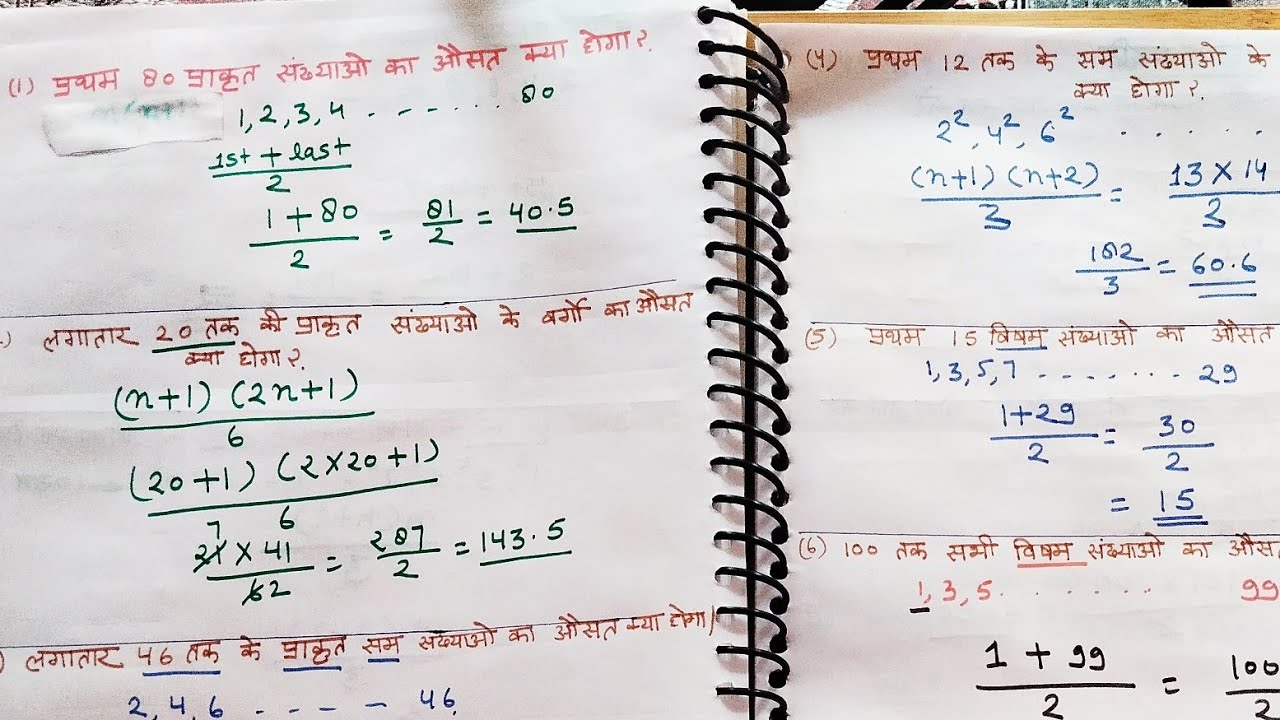 (1) प्रथम 80 प्राकृत संख्याओ का औसत क्या होगा?.
1, 2, 3, 4 - - - ... 80
1st + last
2
1 + 80
2
= 81
2
= 40.5
लगातार 20 तक की प्राकृत संख्याओ के वर्गो का औसत
क्या होगा?.
(n+1) (2n+1)
6
(20+1) (2×20+1)
6
7
21 × 41
62
= 287
2
= 143.5
) लगातार 46 तक के प्राकृत सम संख्याओ का औसत क्या होगा/
2, 4, 6 - - - - - 46.
(4) प्रथम 12 तक के सम संख्याओ के
क्या होगा?.
2², 4², 6² . . . . . .
(n+1) (n+2)
3
= 13 × 14
3
182
3
= 60.6
(5) प्रथम 15 विषम संख्याओ का औसत
1, 3, 5, 7 - - . . - . . 29
1+29
2
= 30
2
= 15
(6) 100 तक सभी विषम संख्याओ का औस
1, 3, 5 . . . . . . . . 99
1 + 99
2
= 100
2